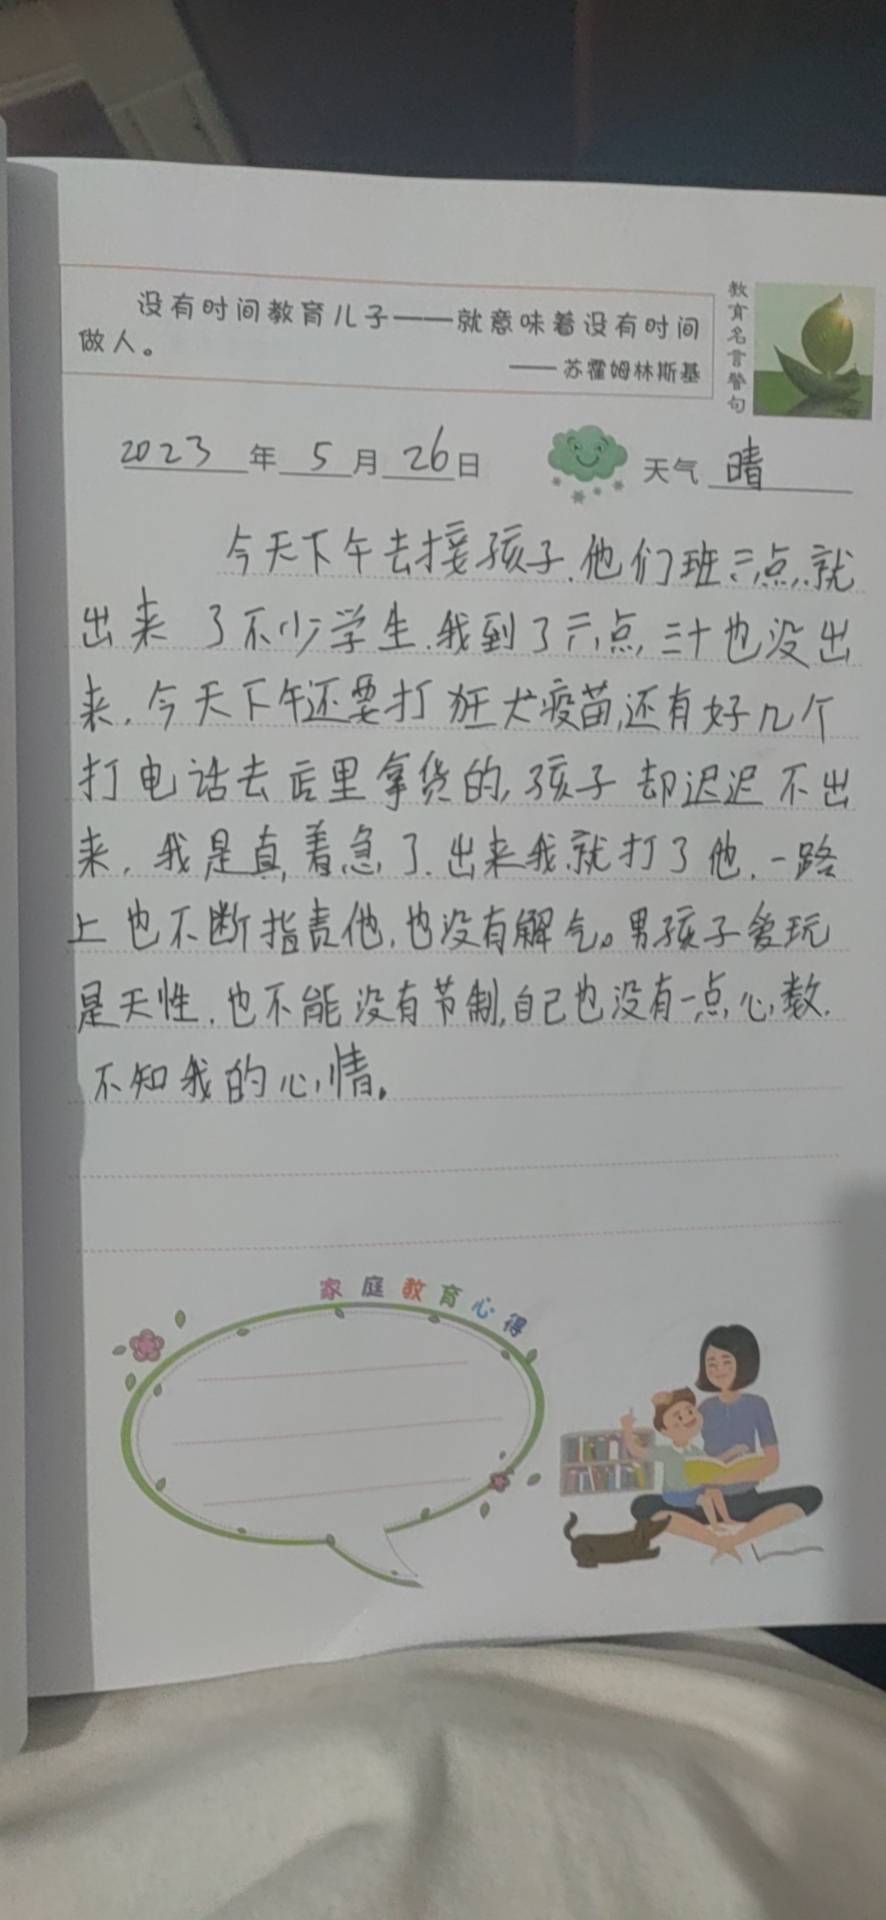 没有时间教育儿子——就意味着没有时间
做人。
——苏霍姆林斯基
教育名言警句
2023年5月26日 天气 晴
今天下午去接孩子.他们班六点.就
出来了不少学生.我到了六点三十也没出
来.今天下午还要打狂犬疫苗,还有好几个
打电话去店里拿货的,孩子却迟迟不出
来.我是真着急了.出来我就打了他.一路
上也不断指责他,也没有解气。男孩子爱玩
是天性.也不能没有节制,自己也没有一点心数.
不知我的心情。
家庭教育心得